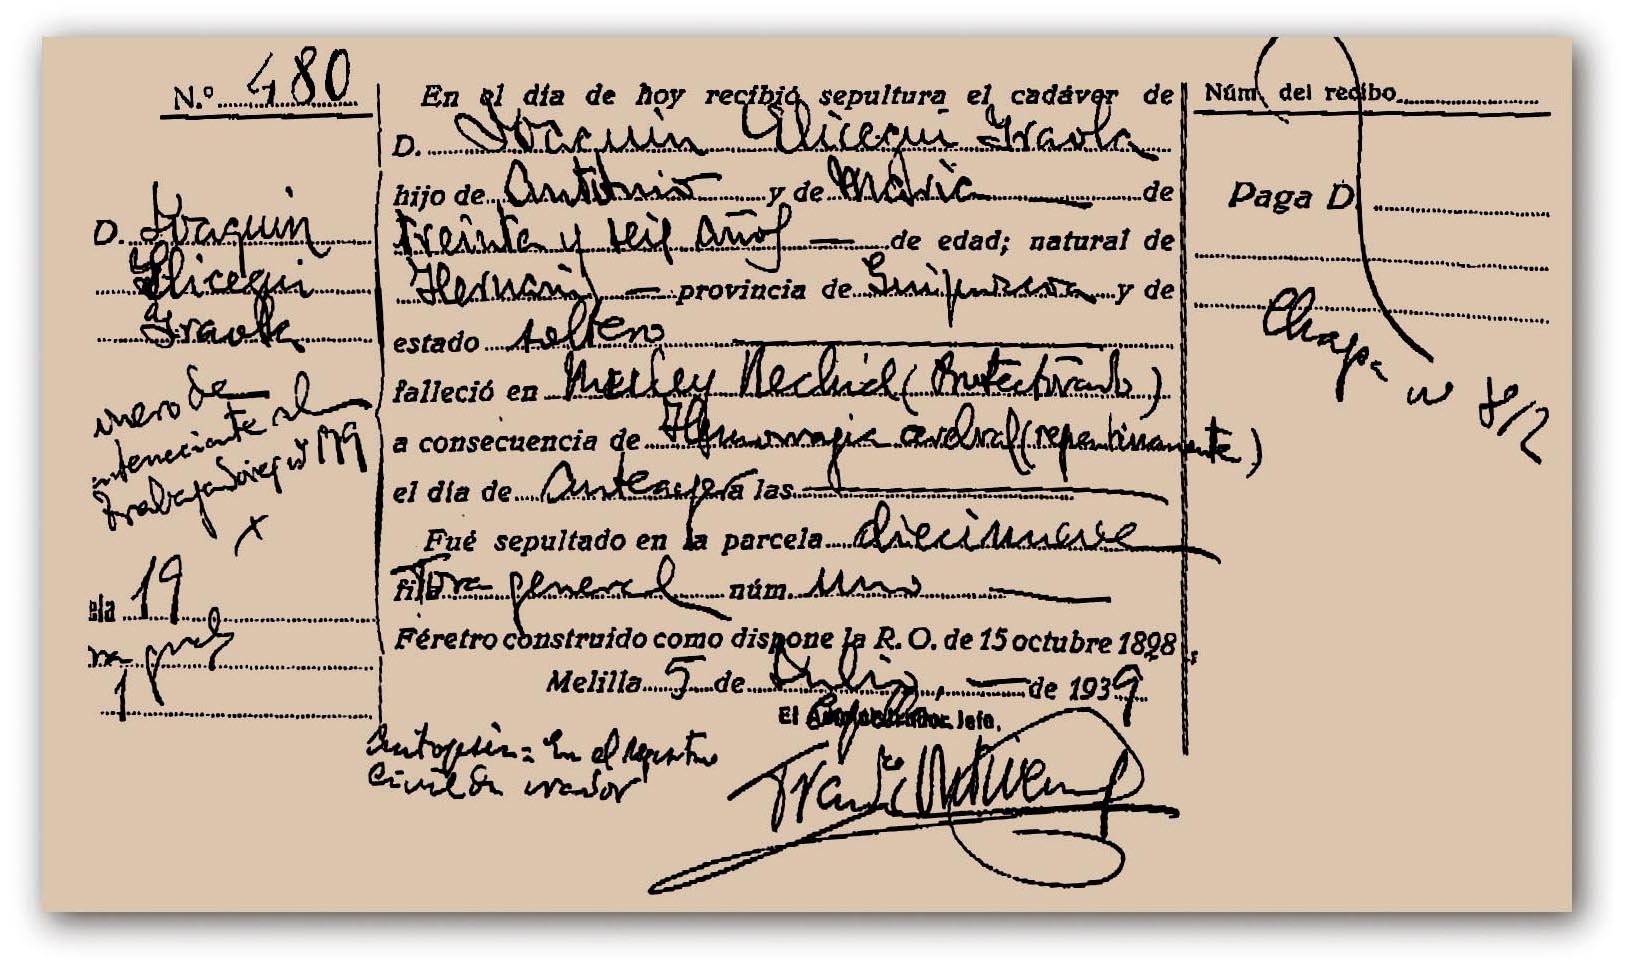 N.º 480
D. Joaquin
Elicegui
Iraola
nero de
teneciente al
Trabajadores nº 179
x
ela 19
ra gral
1
En el día de hoy recibió sepultura el cadáver de
D. Joaquin Elicegui Iraola
hijo de Antonio y de Maria de
treinta y seis años de edad; natural de
Hernani provincia de Guipuzcoa y de
estado soltero
falleció en Muley Rechid (Protectorado)
a consecuencia de Hemorragia cerebral (repentinamente)
el día de Anteayer a las
Fué sepultado en la parcela diecinueve
fila Fra general núm. uno
Féretro construido como dispone la R. O. de 15 octubre 1898
Melilla 5 de Julio, de 1939
El Administrador Jefe,
En el registro
Civil
Núm. del recibo
Paga D.
Chapa nº